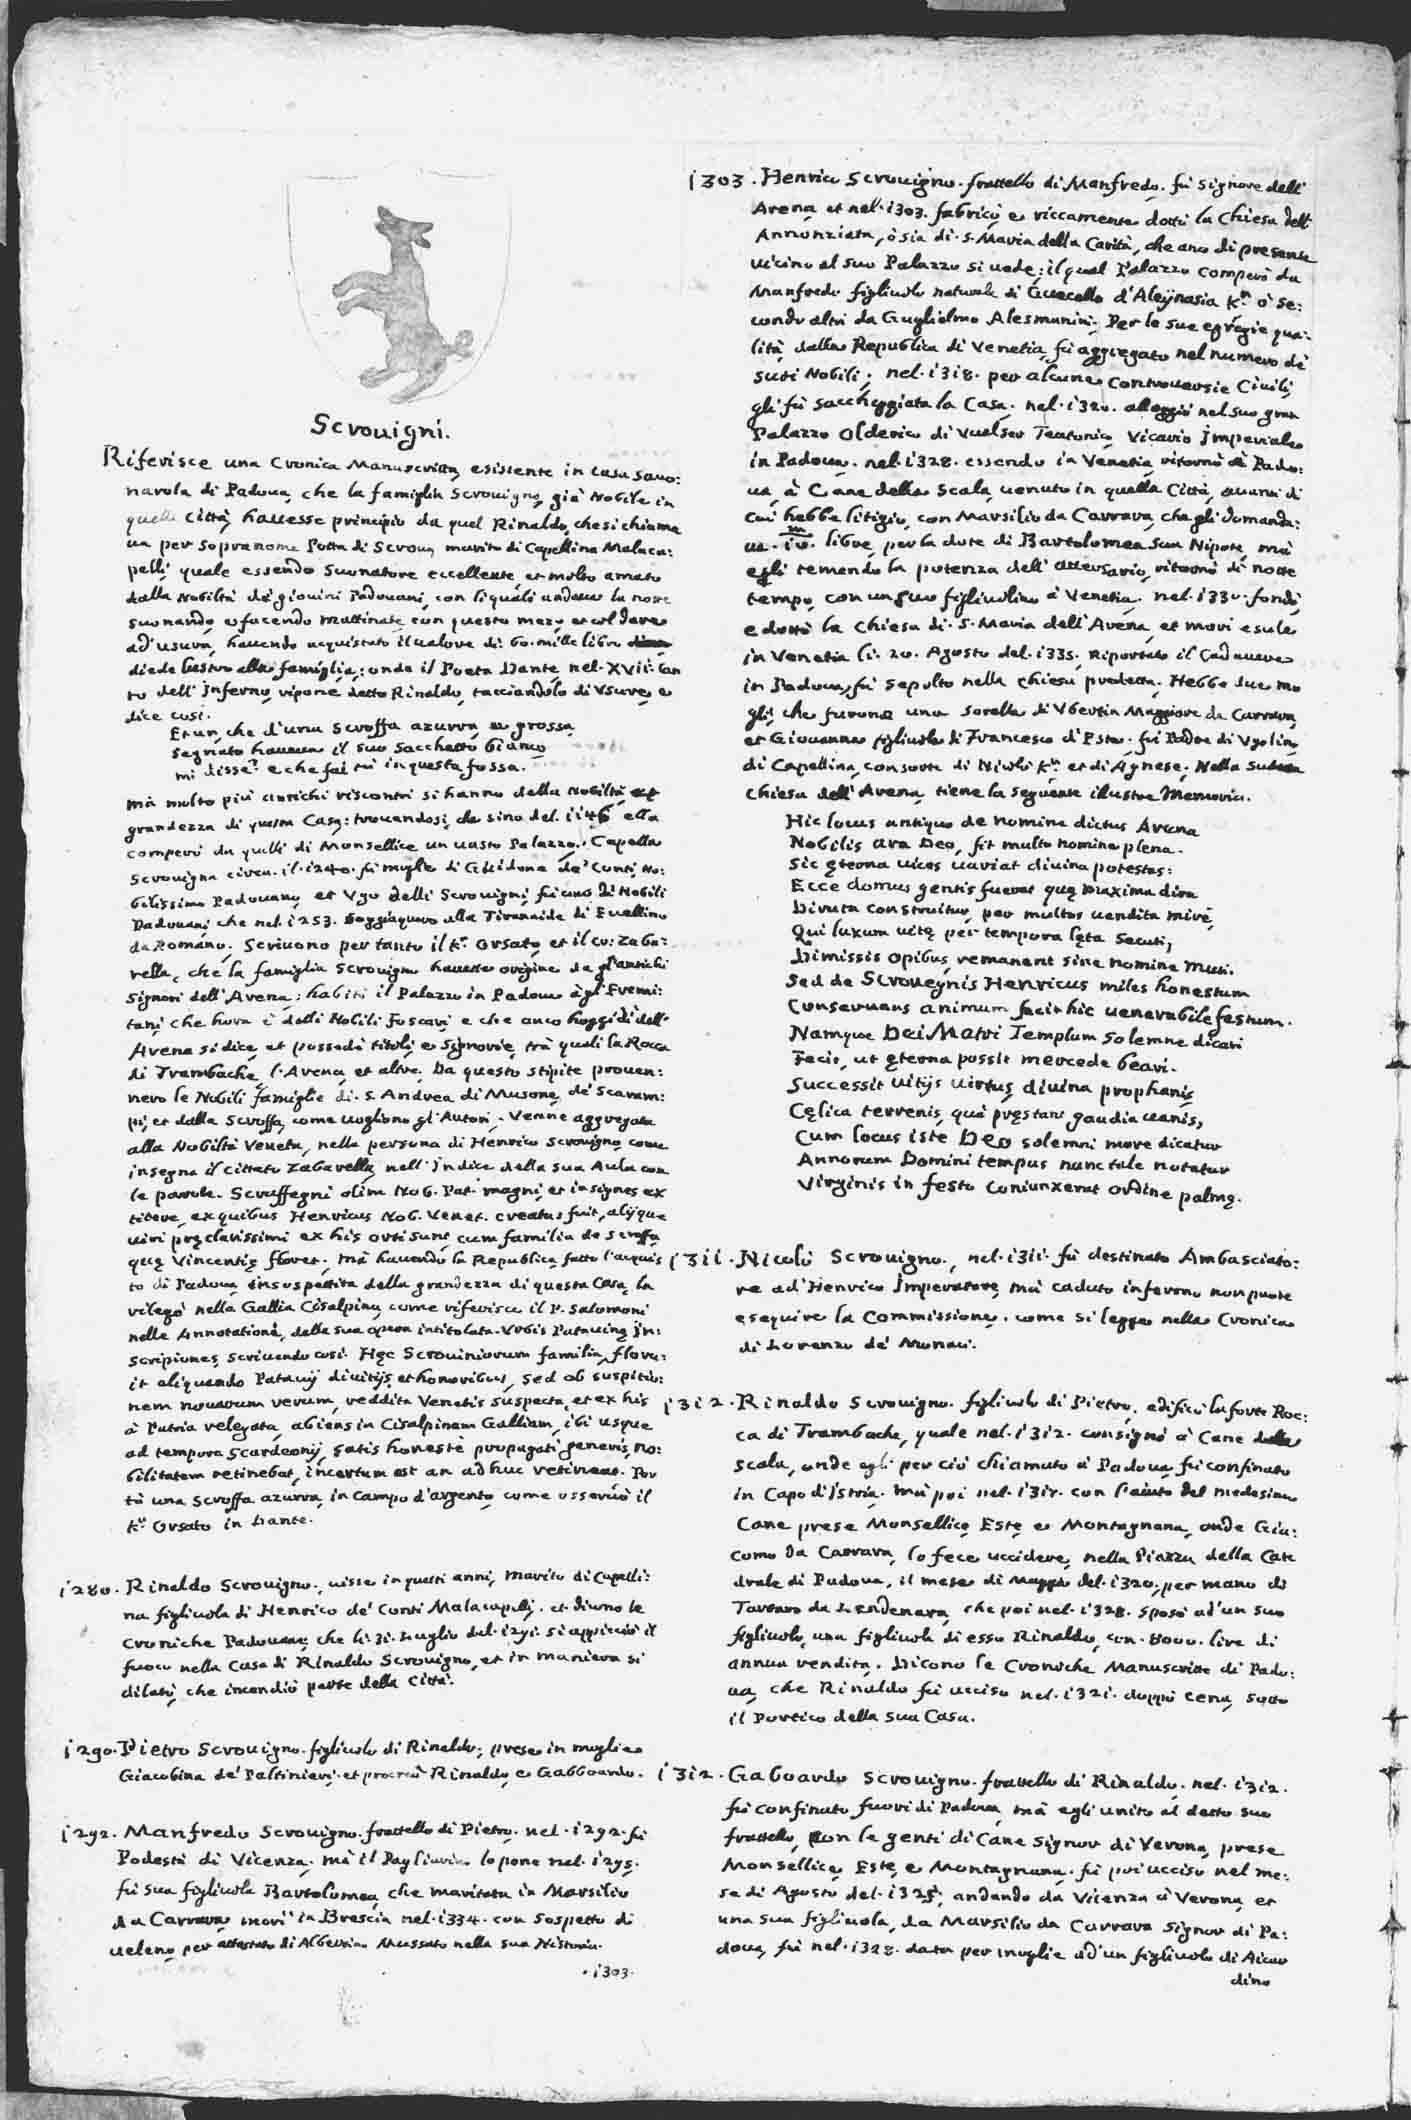 Scrouigni.
Riferisce una Cronica Manuscritta, esistente in casa Sauo:
narola di Padoua, che la famiglia Scrouigno, già Nobile in
quella Città, hauesse principio da quel Rinaldo, che si chiama
ua per sopranome Potta di Scroua, marito di Capellina Malaca:
pelli, quale essendo Suonatore eccellente, et molto amato
dalla Nobiltà de' giouini Padouani, con li quali andaua la notte
suonando, e facendo mattinate, con questo mezo, et col dare
ad' usura, hauendo acquistato il ualore di 60. mille libre
diede lustro alla famiglia: onde il Poeta Dante, nel XVII. Can
to dell' Inferno, ripone detto Rinaldo, tacciandolo di Vsure, e
dice cosi.
Et un, che d'una Scroffa azurra, e grossa,
Segnato haueua il suo Sacchetto bianco,
mi disse: e che fai tù in questa fossa.
mà molto più antichi riscontri si hanno della Nobiltà, et
grandezza di questa Casa: trouandosi, che sino del 1146 ella
comperò da quelli di Monsellice un uasto Palazzo. Capella
Scrouigna circa il 1240. fù moglie di Guidone de' Conti, No:
bilissimo Padouano, et Vgo delli Scrouigni, fù uno di Nobili
Padouani, che nel 1253. soggiaquero alla Tirannide di Ezellino
da Romano. Scriuono per tanto il Kr. Orsato, et il Co: Zaba:
rella, che la famiglia Scrouigno hauesse origine da gl'antichi
Signori dell' Arena: habitò il Palazzo in Padoua à gl' Eremi:
tani, che hora è delli Nobili Foscari, e che anco hoggidì dell'
Arena si dice, et possedè titoli, e Signorie, trà quali la Rocca
di Trambache, l'Arena, et altre. Da questo stipite prouen:
nero le Nobili famiglie di S. Andrea di Musone, de' Scaram:
pi, et dalla Scroffa, come uogliono gl' Autori. Venne aggregata
alla Nobiltà Veneta, nella persona di Henrico Scrouigno, come
insegna il cittato Zabarella, nell' Indice della sua Aula con
le parole. Scroffegni olim Nob. Pat. magni, et insignes ex
titere, ex quibus Henricus Nob. Venet. creatus fuit, alijque
uiri pręclarissimi ex his orti sunt, cum familia de Scroffa
quę Vincentię floret. mà hauendo la Republica fatto l'acquis
to di Padoua, insospettita della grandezza di questa Casa, la
rilegò nella Gallia Cisalpina, come riferisce il P. Salomoni
nelle Annotationi, della sua opera intitolata Vrbis Patauinę In:
scriptiones, scriuendo cosi. Hęc Scrouiniorum familia, floru:
it aliquando Patauij diuitijs, et honoribus, sed ob suspitio:
nem nouarum rerum, reddita Venetis suspecta, et ex his
à Patria relegata, abiens in Cisalpinam Galliam, ibi usque
ad tempora Scardeonij, satis honestè propagati generis, no:
bilitatem retinebat, incertum est an adhuc retineat. Por
tò una Scroffa azurra, in campo d'argento, come osseruò il
Kr. Orsato in Dante.
1280. Rinaldo Scrouigno., uisse in questi anni, marito di Capelli:
na figliuola di Henrico de' Conti Malacapelli. et dicono le
Croniche Padouane, che li 31. Luglio del 1291. si appicciò il
fuoco nella Casa di Rinaldo Scrouigno, et in maniera si
dilatò, che incendiò parte della Città.
1290. Pietro Scrouigno. figliuolo di Rinaldo, prese in moglie
Giacobina de' Paltinieri. et procreò Rinaldo, e Gabboardo.
1292. Manfredo Scrouigno. fratello di Pietro. nel 1292. fù
Podestà di Vicenza. mà il Pagliarin lo pone nel 1295.
fù sua figliuola Bartolomea, che maritata in Marsilio
da Carrara, morì in Brescia nel 1334. con sospetto di
ueleno, per attestato di Albertino Mussato nella sua Historia.
.1303.
1303. Henrico Scrouigno. fratello di Manfredo. fù Signore dell'
Arena, et nel 1303. fabricò, e riccamente dottò la Chiesa dell'
Annonziata, ò sia di S. Maria della Carità, che anco di presente
uicino al suo Palazzo si uede: il qual Palazzo comperò da
Manfredo figliuolo naturale di Guecello d'Alesmania Kr. ò se:
condo altri da Guglielmo Alesmanini. Per le sue egregie qua:
lità dalla Republica di Venetia, fù aggregato nel numero de
suoi Nobili; nel 1318. per alcune Controuersie Ciuili,
gli fù saccheggiata la Casa. nel 1320. alloggiò nel suo gran
Palazzo Olderico di Vualser Teutonico, Vicario Imperiale
in Padoua. nel 1328. essendo in Venetia, ritornò à Pado:
ua, à Cane della Scala, uenuto in quella Città, auanti di
cui hebbe litigio, con Marsilio da Carrara, che gli domanda:
ua m/10. libre, per la dote di Bartolomea sua Nipote, mà
egli temendo la potenza dell' auuersario, ritornò di notte
tempo, con un suo figliuolino à Venetia. nel 1330. fondò,
e dottò la Chiesa di S. Maria dell' Arena, et morì esule
in Venetia li 20. Agosto del 1335. Riportato il Cadauere
in Padoua, fù sepolto nella chiesa predetta. Hebbe due mo
gli, che furono una sorella di Vbertin Maggiore da Carrara,
et Giouanna figliuola di Francesco d'Este. fù Padre di Vgolin,
di Capellina, consorte di Nicolò Kr. et di Agnese. Nella sudetta
Chiesa dell' Arena, tiene la seguente illustre Memoria.
Hic locus antiquo de nomine dictus Arena
Nobilis ara Deo, fit multo nomine plena.
Sic ęterna uices uariat diuina potestas:
Ecce domus gentis fuerat quę maxima dira
Diruta construitur, per multos uendita mirè,
Qui luxum uitę per tempora lęta secuti,
Dimissis opibus, remanent sine nomine muti.
Sed de Scrouegnis Henricus miles honestum
Conseruans animum facit hic uenerabile festum.
Namque Dei Matri Templum solemne dicari
Fecit, ut ęterna possit mercede beari.
Successit uitijs uirtus, diuina prophanis,
Cęlica terrenis, quę pręstant gaudia uanis,
Cum locus iste Deo solemni more dicatur
Annorum Domini tempus nunc tale notatur
Virginis in festo coniunxerat ordine palmę.
1311. Nicolò Scrouigno., nel 1311. fù destinato Ambasciato:
re ad' Henrico Imperatore, mà caduto infermo non puote
esequire la Commissione. come si legge nella Cronica
di Lorenzo de' Monaci.
1312. Rinaldo Scrouigno. figliuolo di Pietro, edificò la forte Roc:
ca di Trambache, quale nel 1312. consignò à Cane dalla
Scala, onde egli per ciò chiamato à Padoua, fù confinato
in Capo d'Istria. mà poi nel 1317. con l'aiuto del medesimo
Cane prese Monsellice, Este, e Montagnana, onde Gia:
como da Carrara, lo fece uccidere, nella Piazza della Cate
drale di Padoua, il mese di Maggio del 1320. per mano di
Tartaro da Lendenara, che poi nel 1328. sposò ad' un suo
figliuolo, una figliuola di esso Rinaldo, con 8000. lire di
annua rendita. Dicono le Croniche Manuscritte di Pado:
ua, che Rinaldo fù ucciso nel 1321. doppò cena, sotto
il Portico della sua Casa.
1312. Gaboardo Scrouigno. fratello di Rinaldo. nel 1312.
fù confinato fuori di Padoua, mà egli unito al detto suo
fratello, con le genti di Cane Signor di Verona, prese
Monsellice, Este, e Montagnana. fù poi ucciso nel me:
se di Agosto del 1325. andando da Vicenza à Verona, et
una sua figliuola, da Marsilio da Carrara Signor di Pa:
doua, fù nel 1328. data per moglie ad' un figliuolo di Aicar
dino